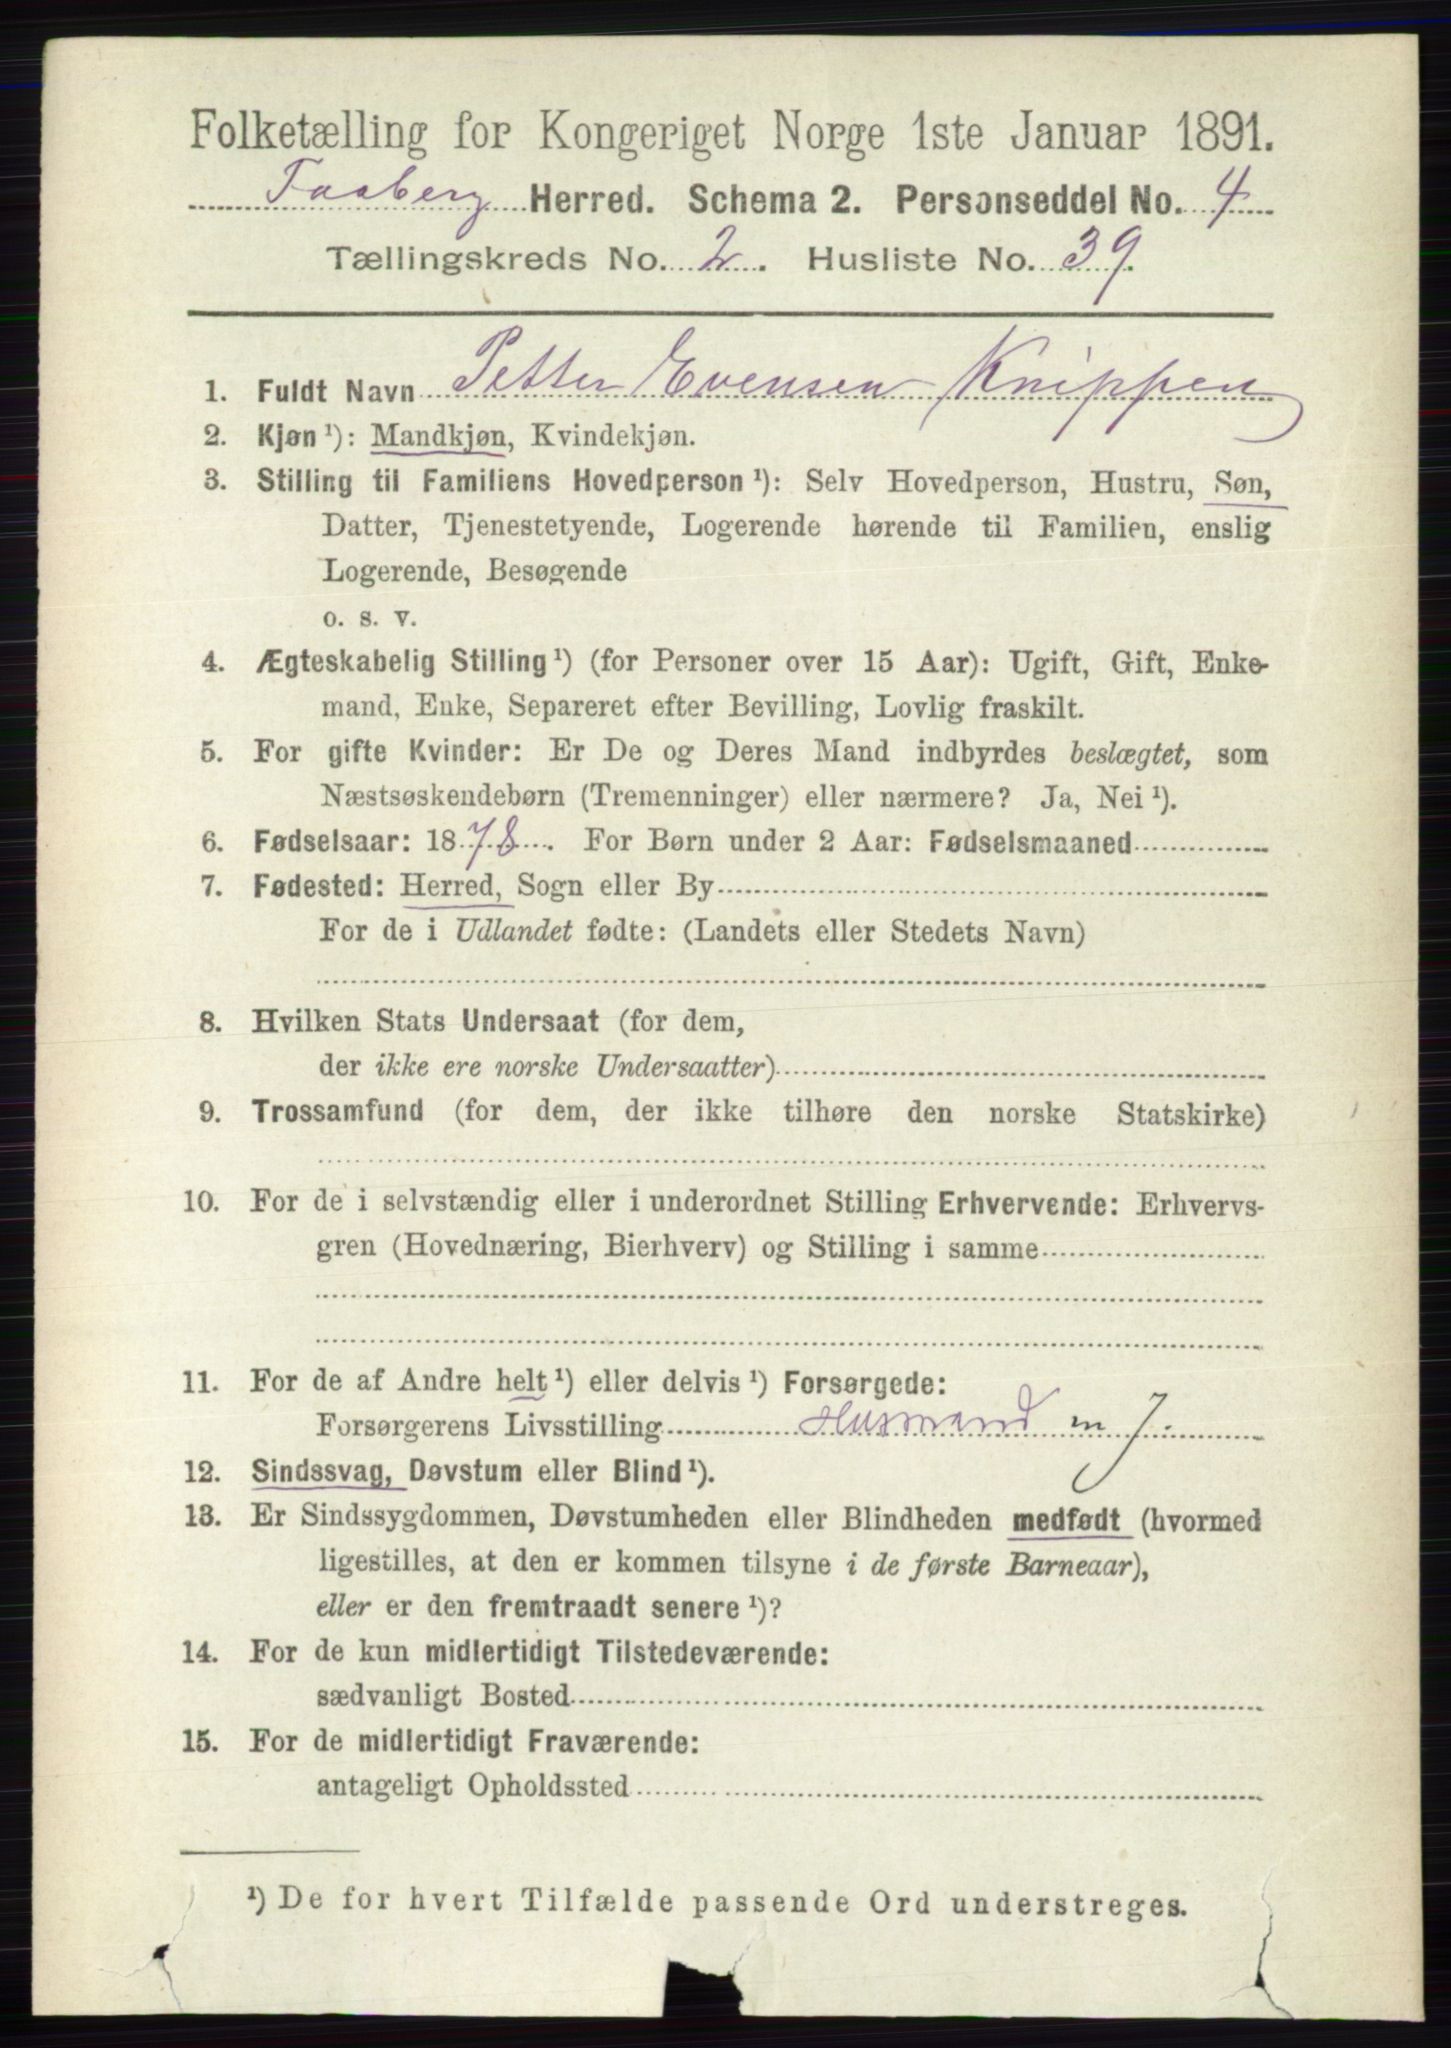 Folketælling for Kongeriget Norge 1ste Januar 1891.
Faaberg Herred. Schema 2. Personseddel No. 4
Tællingskreds No. 2. Husliste No. 39.
1. Fuldt Navn Petter Evensen Knippen
2. Kjøn ¹): Mandkjøn, Kvindekjøn.
3. Stilling til Familiens Hovedperson ¹): Selv Hovedperson, Hustru, Søn,
Datter, Tjenestetyende, Logerende hørende til Familien, enslig
Logerende, Besøgende
o. s. v.
4. Ægteskabelig Stilling ¹) (for Personer over 15 Aar): Ugift, Gift, Enke-
mand, Enke, Separeret efter Bevilling, Lovlig fraskilt.
5. For gifte Kvinder: Er De og Deres Mand indbyrdes beslægtet, som
Næstsøskendebørn (Tremenninger) eller nærmere? Ja, Nei ¹).
6. Fødselsaar: 1878. For Børn under 2 Aar: Fødselsmaaned
7. Fødested: Herred, Sogn eller By
For de i Udlandet fødte: (Landets eller Stedets Navn)
8. Hvilken Stats Undersaat (for dem,
der ikke ere norske Undersaatter)
9. Trossamfund (for dem, der ikke tilhøre den norske Statskirke)
10. For de i selvstændig eller i underordnet Stilling Erhvervende: Erhvervs-
gren (Hovednæring, Bierhverv) og Stilling i samme
11. For de af Andre helt ¹) eller delvis ¹) Forsørgede:
Forsørgerens Livsstilling Husmand m J.
12. Sindssvag, Døvstum eller Blind ¹).
13. Er Sindssygdommen, Døvstumheden eller Blindheden medfødt (hvormed
ligestilles, at den er kommen tilsyne i de første Barneaar),
eller er den fremtraadt senere ¹)?
14. For de kun midlertidigt Tilstedeværende:
sædvanligt Bosted
15. For de midlertidigt Fraværende:
antageligt Opholdssted
¹) De for hvert Tilfælde passende Ord understreges.